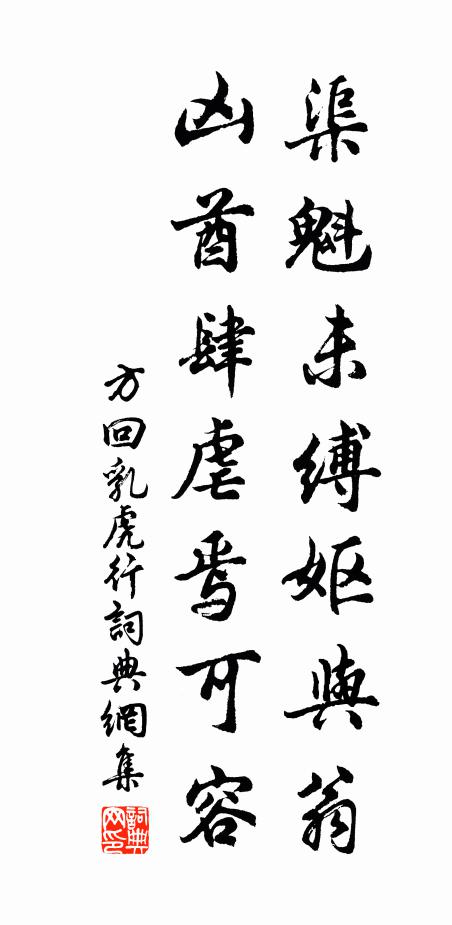 渠魁未縛嫗與翁
凶酋肆虐焉可容
方回乳虎行詞典網集
詞典网印